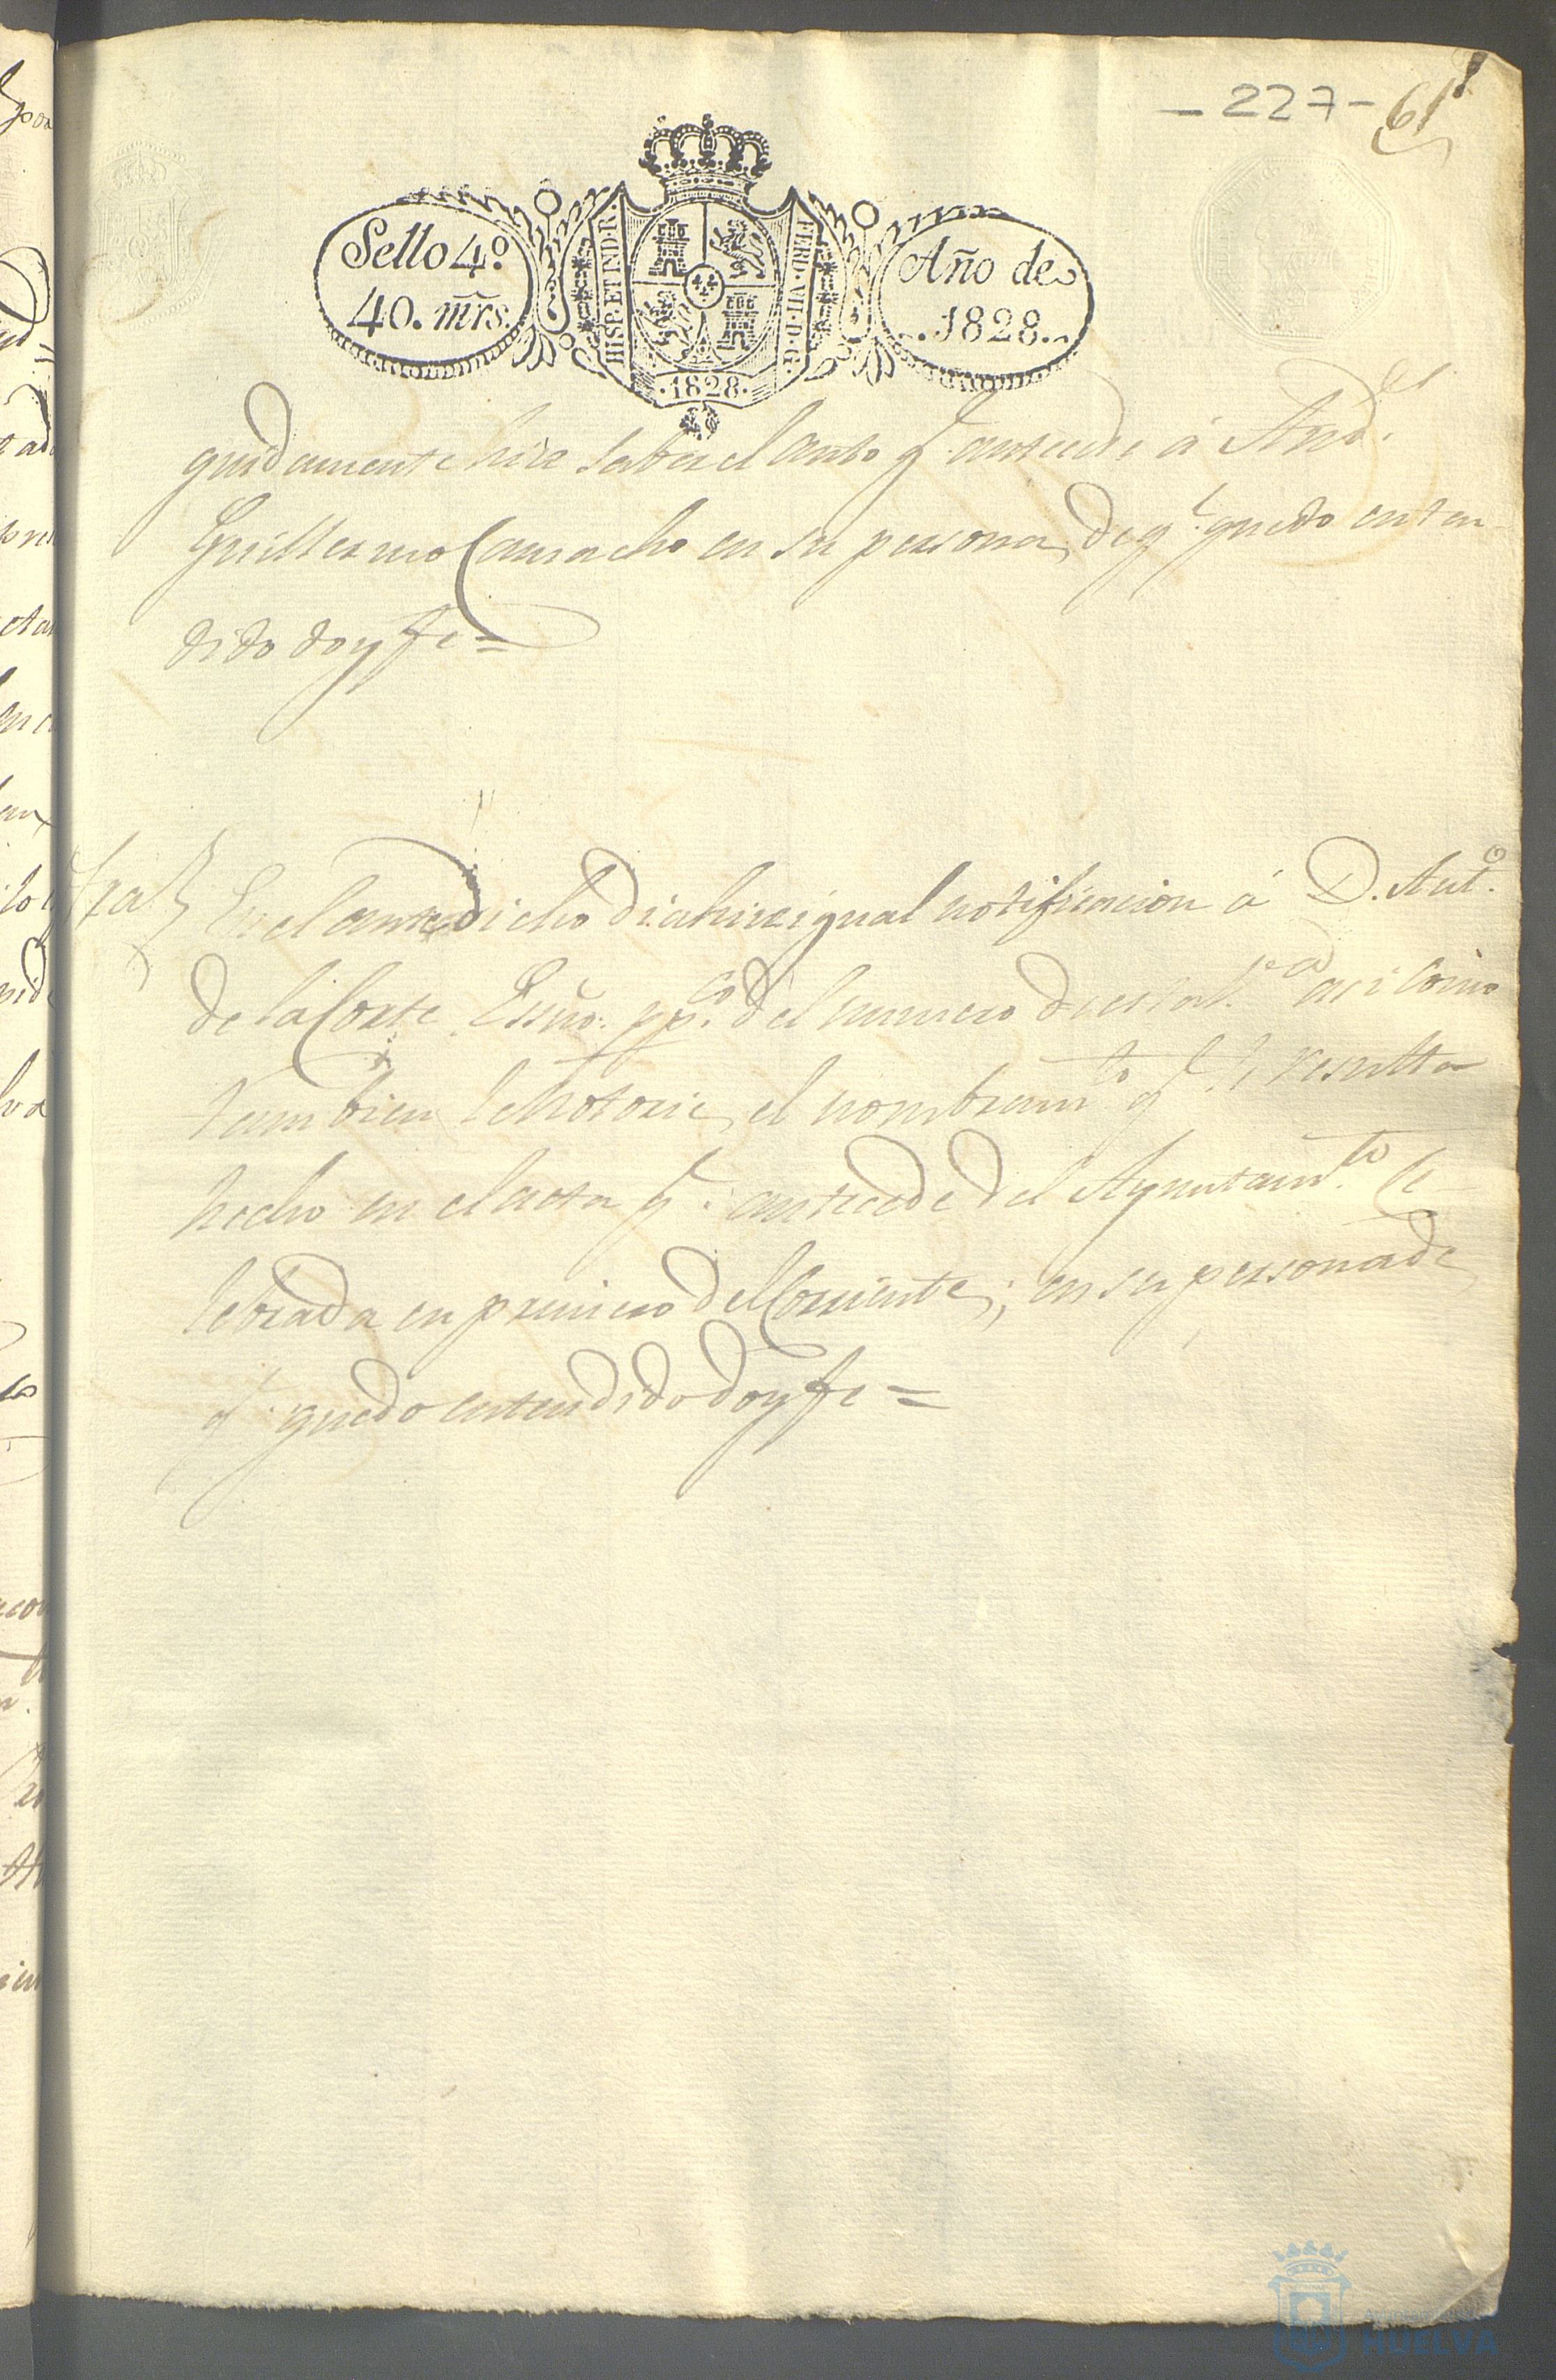 - 227 - 61
Sello 4º.
40. mr̃s.
HISP. ET IND. R.
FERD. VII. D. G.
·1828·
Año de
1828.
guidamente hice saber el auto q.e antecede á And.s
Guillermo Camacho en su persona, de q.e quedo enten-
dido doy fe =
Otra
En el antedicho dia hice igual notificacion á D. Ant.o
de la Corte Essno. pp.co del numero de esta V.a asi como
tambien le notorie, el nombram.to q.e le resulta
hecho en el acta q.e antecede del Ayuntam.to Ce-
lebrada en primero del Corriente; en su persona de
q.e quedo entendido doy fe =
HUELVA